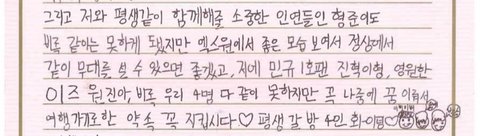 그리고 저와 평생같이 함께해줄 소중한 인연들인 형준이도
비록 같이는 못하게 됐지만 엑스원에서 좋은 모습 보여서 정상에서
같이 무대를 설 수 있으면 좋겠고, 저에 민규 1호팬 진혁이형, 영원한
이즈 원진아, 비록 우리 4명 다 같이 못하지만 꼭 나중에 꿈 이뤄서
여행가기로한 약속 꼭 지킵시다♡ 평생 갈 방 4인 화이팅♡